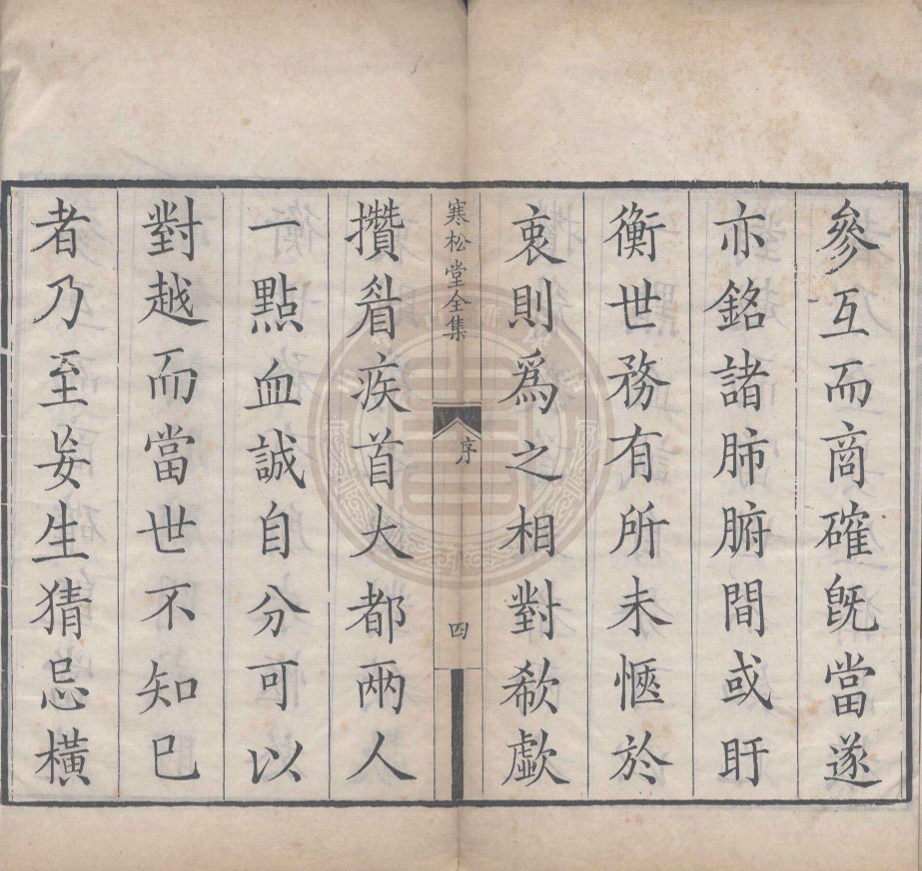 參互而商確旣當遂
亦銘諸肺腑間或盱
衡世務有所未愜於
衷則爲之相對欷歔
寒松堂全集
序
四
攢眉疾首大都兩人
一點血誠自分可以
對越而當世不知已
者乃至妄生猜忌橫